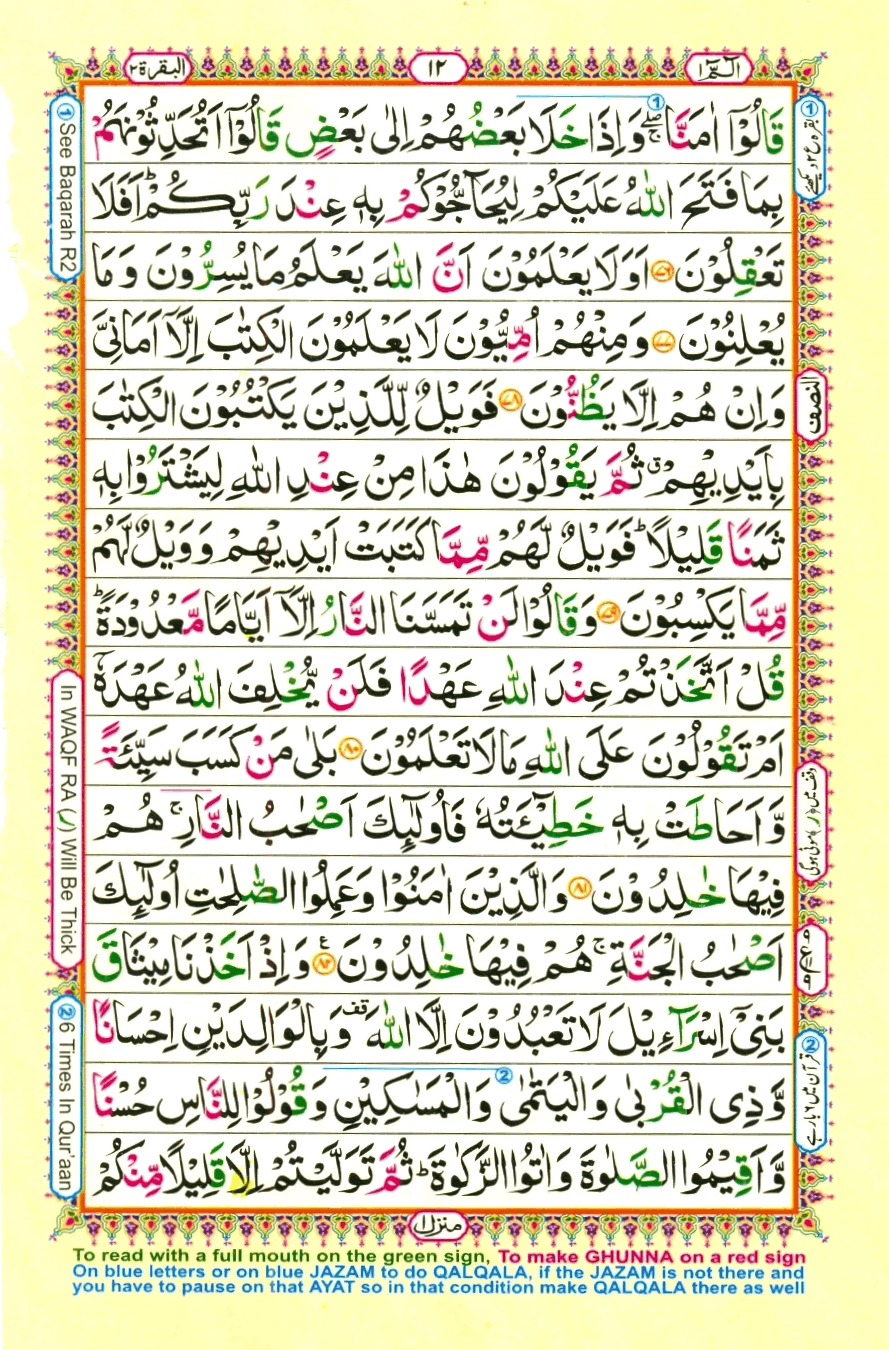 الٓمّٓ ١
١٢
البقرة ٢
قَالُوْٓا اٰمَنَّا ۖۚ وَاِذَا خَلَا بَعْضُهُمْ اِلٰى بَعْضٍ قَالُوْٓا اَتُحَدِّثُوْنَهُمْ
بِمَا فَتَحَ اللّٰهُ عَلَيْكُمْ لِيُحَآجُّوْكُمْ بِهٖ عِنْدَ رَبِّكُمْ ؕ اَفَلَا
تَعْقِلُوْنَ ﴿٧٦﴾ اَوَلَا يَعْلَمُوْنَ اَنَّ اللّٰهَ يَعْلَمُ مَا يُسِرُّوْنَ وَمَا
يُعْلِنُوْنَ ﴿٧٧﴾ وَمِنْهُمْ اُمِّيُّوْنَ لَا يَعْلَمُوْنَ الْكِتٰبَ اِلَّآ اَمَانِيَّ
وَاِنْ هُمْ اِلَّا يَظُنُّوْنَ ﴿٧٨﴾ فَوَيْلٌ لِّلَّذِيْنَ يَكْتُبُوْنَ الْكِتٰبَ
بِاَيْدِيْهِمْ ۗ ثُمَّ يَقُوْلُوْنَ هٰذَا مِنْ عِنْدِ اللّٰهِ لِيَشْتَرُوْا بِهٖ
ثَمَنًا قَلِيْلًا ؕ فَوَيْلٌ لَّهُمْ مِّمَّا كَتَبَتْ اَيْدِيْهِمْ وَوَيْلٌ لَّهُمْ
مِّمَّا يَكْسِبُوْنَ ﴿٧٩﴾ وَقَالُوْا لَنْ تَمَسَّنَا النَّارُ اِلَّآ اَيَّامًا مَّعْدُوْدَةً ؕ
قُلْ اَتَّخَذْتُمْ عِنْدَ اللّٰهِ عَهْدًا فَلَنْ يُّخْلِفَ اللّٰهُ عَهْدَهٗٓ
اَمْ تَقُوْلُوْنَ عَلَى اللّٰهِ مَا لَا تَعْلَمُوْنَ ﴿٨٠﴾ بَلٰى مَنْ كَسَبَ سَيِّئَةً
وَّاَحَاطَتْ بِهٖ خَطِيْٓئَتُهٗ فَاُولٰٓئِكَ اَصْحٰبُ النَّارِ ۚ هُمْ
فِيْهَا خٰلِدُوْنَ ﴿٨١﴾ وَالَّذِيْنَ اٰمَنُوْا وَعَمِلُوا الصّٰلِحٰتِ اُولٰٓئِكَ
اَصْحٰبُ الْجَنَّةِ ۚ هُمْ فِيْهَا خٰلِدُوْنَ ﴿٨٢﴾ ع وَاِذْ اَخَذْنَا مِيْثَاقَ
بَنِيْٓ اِسْرَآءِيْلَ لَا تَعْبُدُوْنَ اِلَّا اللّٰهَ قف وَبِالْوَالِدَيْنِ اِحْسَانًا
وَّذِى الْقُرْبٰى وَالْيَتٰمٰى وَالْمَسٰكِيْنِ وَقُوْلُوْا لِلنَّاسِ حُسْنًا
وَّاَقِيْمُوا الصَّلٰوةَ وَاٰتُوا الزَّكٰوةَ ؕ ثُمَّ تَوَلَّيْتُمْ اِلَّا قَلِيْلًا مِّنْكُمْ
النصف
① See Baqarah R2
In WAQF RA (ر) Will Be Thick
② 6 Times In Qur'aan
منزل ١
To read with a full mouth on the green sign, To make GHUNNA on a red sign
On blue letters or on blue JAZAM to do QALQALA, if the JAZAM is not there and
you have to pause on that AYAT so in that condition make QALQALA there as well